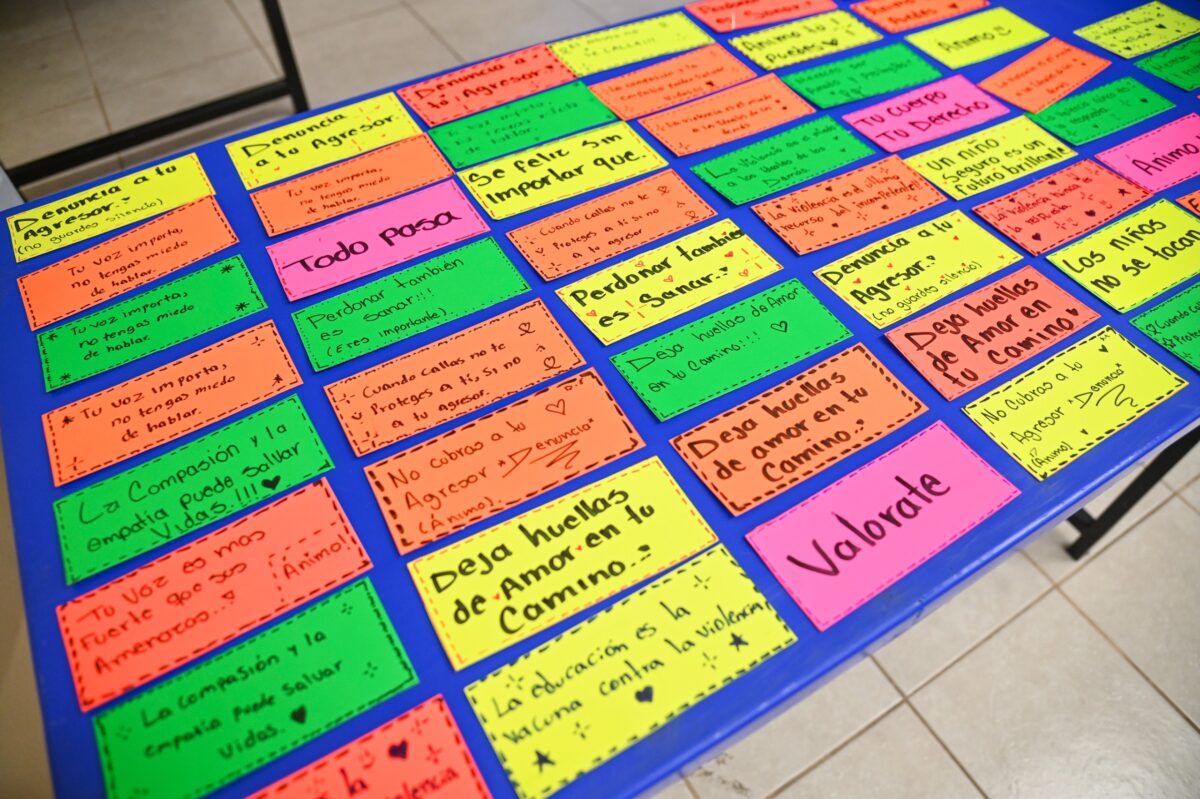 Denuncia a tu
Agresor.
(no guardes silencio)
Tu voz importa,
no tengas miedo
de hablar.
Tu voz importa,
no tengas miedo
de hablar.
Tu voz importa,
no tengas miedo
de hablar.
La Compasión y la
empatía puede salvar
Vidas.!!!
Tu Voz es mas
Fuerte que sus
Amenazas..
Ánimo!
La compasión y la
empatía puede salvar
vidas.
la
violencia
Denuncia
a tu Agresor.
Tu voz importa,
no tengas miedo
de hablar.
Todo Pasa
Perdonar también
es sanar!!!
(Eres
importante)
Cuando Callas no te
Proteges a tí, Si no
a tu agresor.
No Cubras a tu
Agresor "Denuncia"
(Animo).
Deja huellas
de Amor en tu
Camino..
La educación es la
vacuna contra la violencia
Denuncia a
tu Agresor.
Tu voz importa
no tengas miedo
de hablar.
Se feliz sin
Importar que.
Cuando Callas no te
Proteges a tí si no
a tu agresor
Perdonar también
es Sanar..
Deja huellas de Amor
en tu Camino!!!
Deja huellas
de amor en tu
Camino.
Valorate
La compasión y la
empatía puede Salvar
La violencia es el miedo
a los ideales de los
demás.
La Violencia es el miedo
a los ideales de los
Demás.
La violencia es el último
recurso del incompetente
Denuncia a tu
Agresor.
(no guardes silencio)
Deja huellas
de Amor en
tu Camino
No Cubras a tu
Agresor "Denuncia"
(Animo)
Animo tu
Puedes
Tu cuerpo
Tu Derecho
un niño
Seguro es un
futuro brillante
La violencia
Los niños
no se tocan
Animo
Ánimo
Cuando